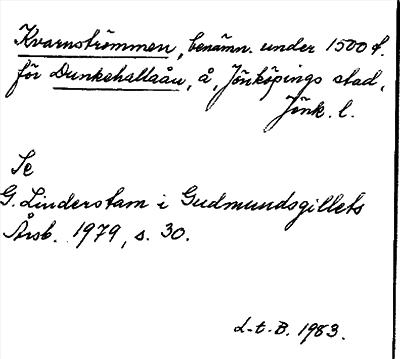 Kvarnströmmen, benämn. under 1500 t.
för Dunkehallaån, å, Jönköpings stad,
Jönk. l.
Se
G. Linderstam i Gudmundsgillets
Årsb. 1979, s. 30.
L-t-B. 1983.